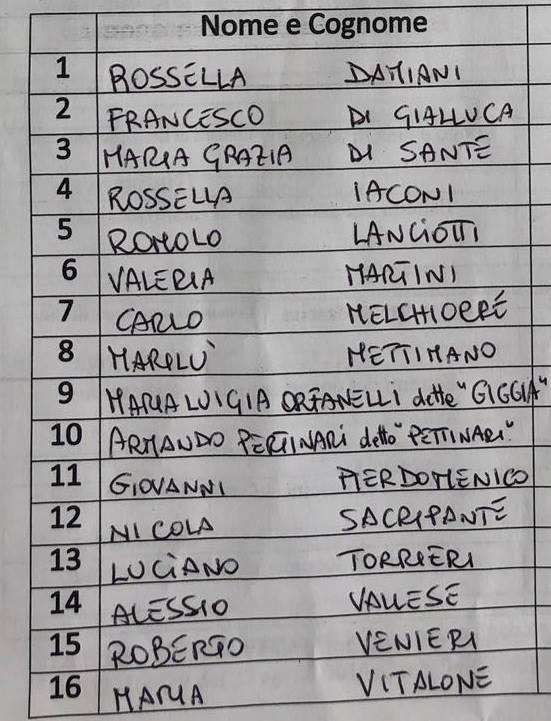 Nome e Cognome
1 ROSSELLA DAMIANI
2 FRANCESCO DI GIALLUCA
3 MARIA GRAZIA DI SANTE
4 ROSSELLA IACONI
5 ROMOLO LANCIOTTI
6 VALERIA MARTINI
7 CARLO MELCHIORRÉ
8 MARILU' METTIMANO
9 MARIA LUIGIA ORFANELLI dette "GIGGIA"
10 ARMANDO PERTINARI detto "PETTINARI"
11 GIOVANNI PIERDOMENICO
12 NICOLA SACRIPANTÉ
13 LUCIANO TORRIERI
14 ALESSIO VALLESE
15 ROBERTO VENIERI
16 MARIA VITALONE